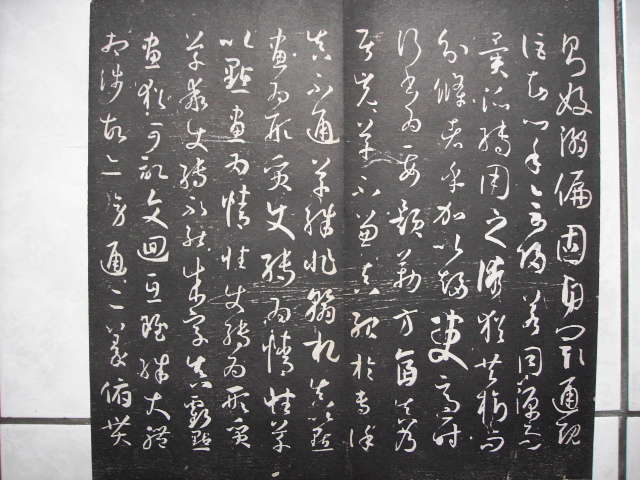 則好溺偏固自閡通規
詎知心手會歸若同源而
異派轉用之術猶共樹而
分條者乎加以趨變適時
行書為要題勒方畐真乃
居先草不兼真殆於專謹
真不通草殊非翰札真以點
畫為形質使轉為情性草
以點畫為情性使轉為形質
草乖使轉不能成字真虧點
畫猶可記文迴互雖殊大體
相涉故亦傍通二篆俯貫